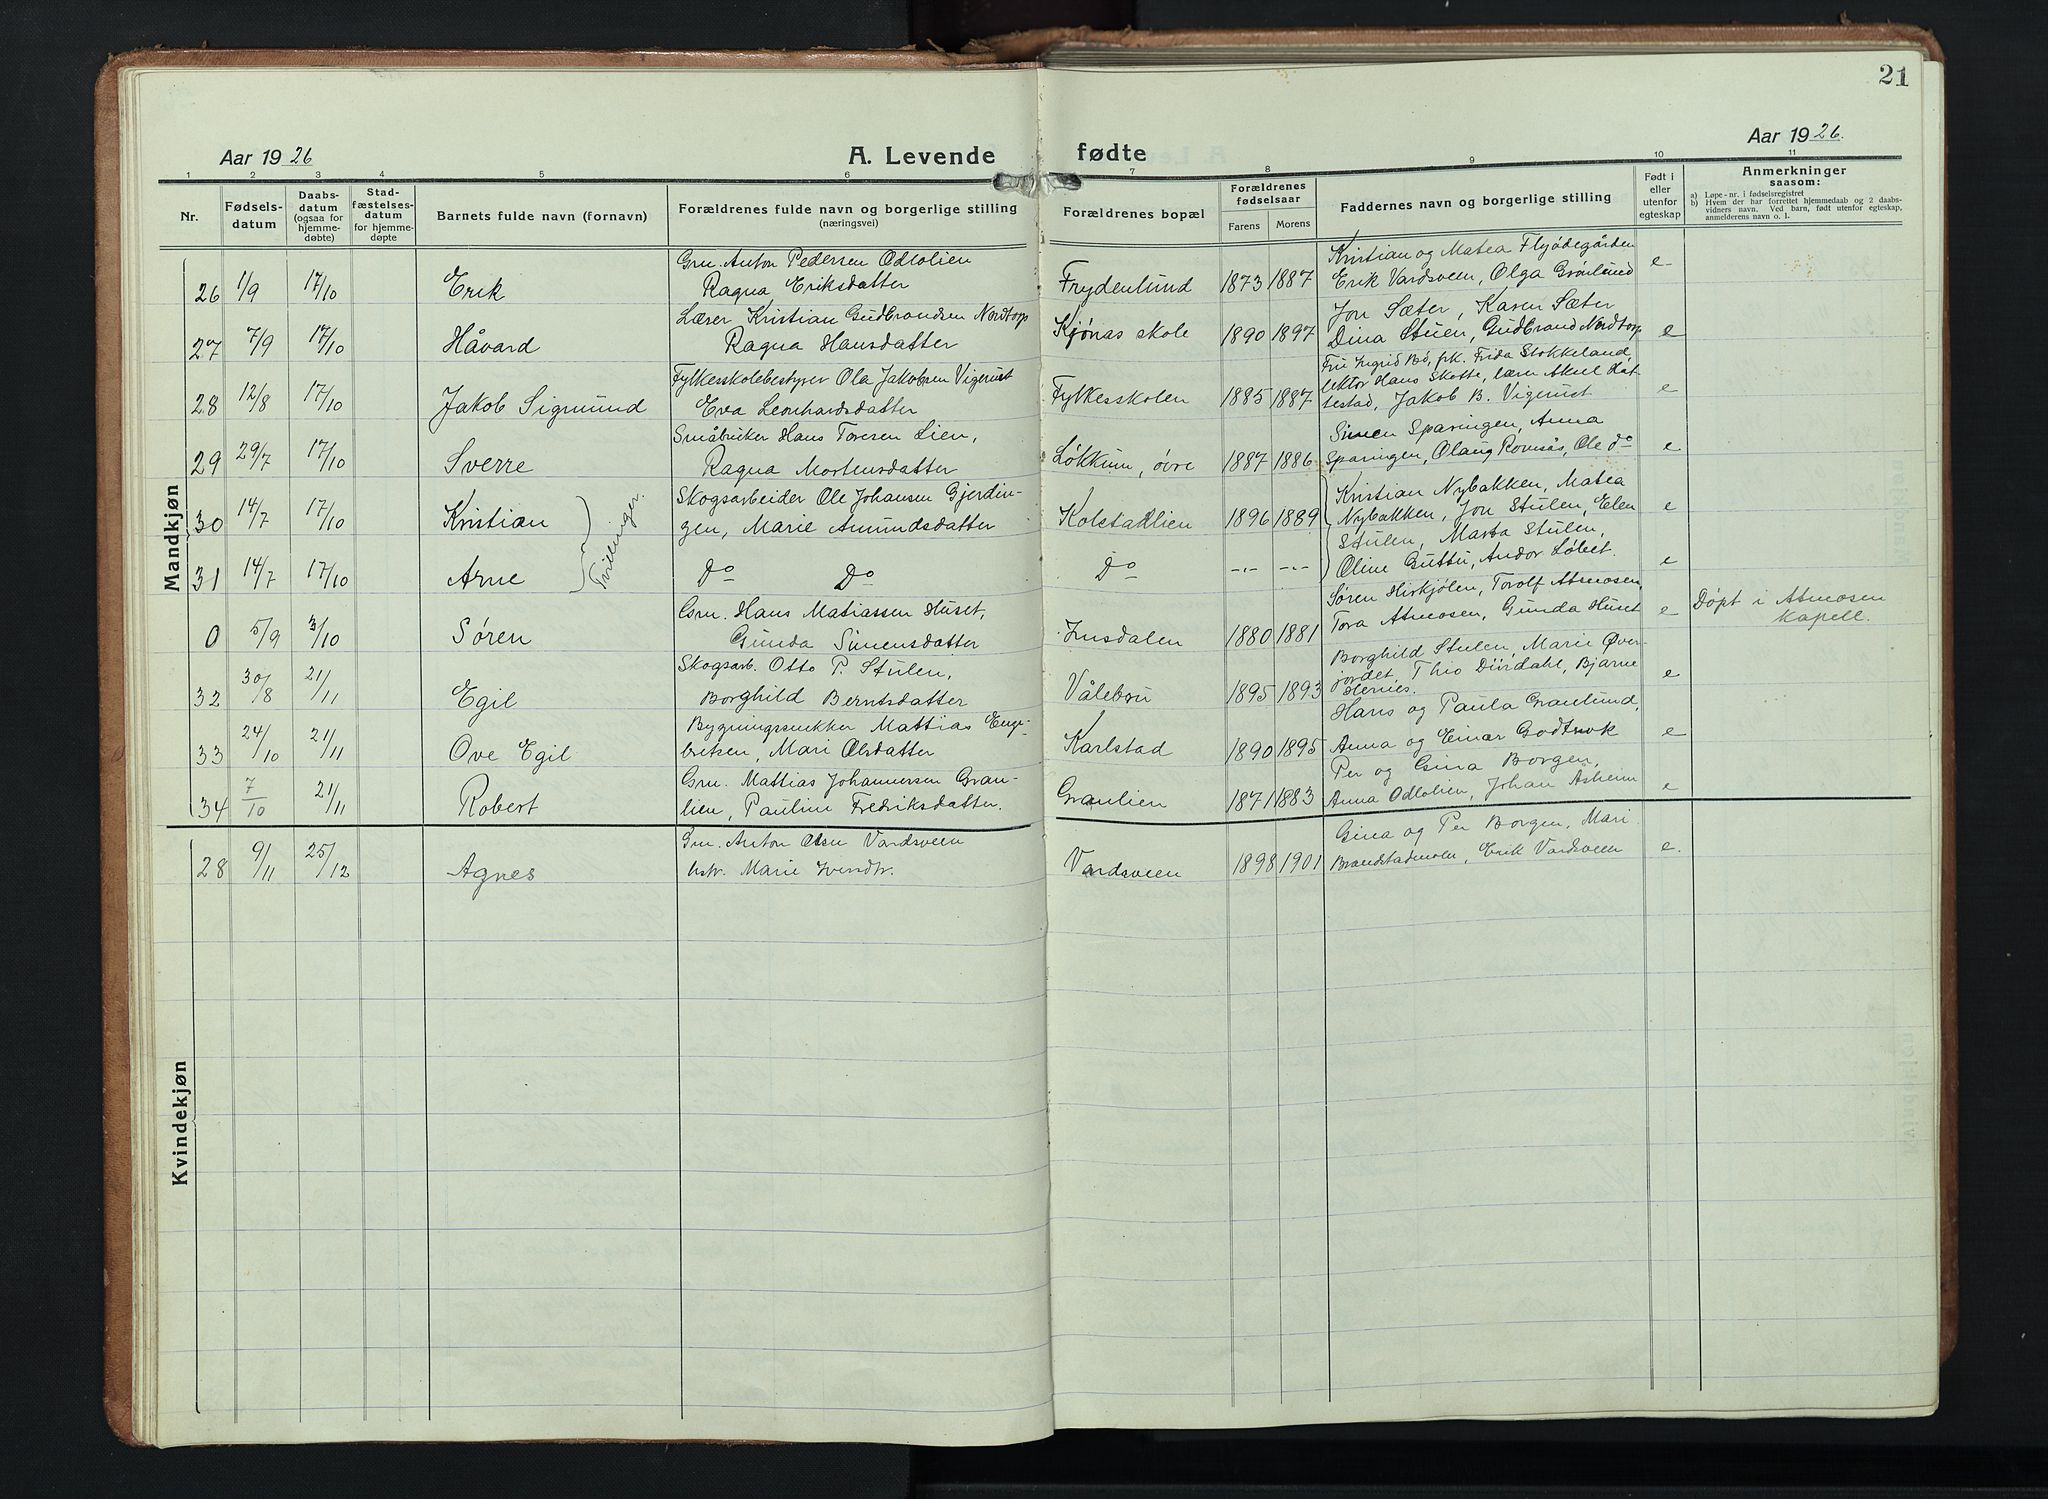 21
Aar 1926
A. Levende fødte
Aar 1926.
1 2 3 4 5 6 7 8 9 10 11
Nr.
Fødselsdatum
Daabsdatum (ogsaa for hjemmedøbte)
Stadfæstelsesdatum for hjemmedøpte
Barnets fulde navn (fornavn)
Forældrenes fulde navn og borgerlige stilling (næringsvei)
Forældrenes bopæl
Forældrenes fødselsaar
Farens Morens
Faddernes navn og borgerlige stilling
Født i eller utenfor egteskap
Anmerkninger saasom:
a) Løpe-nr. i fødselsregistret
b) Hvem der har forrettet hjemmedaab og 2 daabsvidners navn. Ved barn, født utenfor egteskap, anmelderens navn o. l.
Mandkjøn
Grn. Anton Pedersen Odlolien Kristian og Matea Flyødegården
26 1/9 17/10 Erik Ragna Eriksdatter Frydenlund 1873 1887 Erik Vardsveen, Olga Grønlund e
Lærer Kristian Gudbrandsen Nordtorp Jon Sæter, Karen Sæter
27 7/9 17/10 Håvard Ragna Hansdatter Kjønås skole 1890 1897 Dina Stuen, Gudbrand Nordtorp e
Fylkesskolebestyrer Ola Jakobsen Vigerust Fru Ingrid Bø, frk. Frida Stokkeland,
28 12/8 17/10 Jakob Sigmund Eva Leonhardsdatter Fylkesskolen 1885 1887 lektor Hans Skotte, lærer Aksel Hattestad, Jakob B. Vigerust e
Småbruker Hans Toresen Lien, Simen Sparingen, Anna
29 29/7 17/10 Sverre Ragna Mortensdatter Løkkum, øvre 1887 1886 Sparingen, Olaug Romsås, Ole do e
Skogsarbeider Ole Johansen Gjerdin- Kristian Nybakken, Matea
30 14/7 17/10 Kristian gen, Marie Amundsdatter Kolstadlien 1896 1889 Nybakken, Jon Stulen, Elen e
Tvillinger.
Stulen, Marta Stulen,
31 14/7 17/10 Arne Do Do Do -,- -,- Oline Guttu, Andor Løbet. e
Grn. Hans Matiassen Huset, Søren Hirkjølen, Torolf Atmosen,
0 5/9 3/10 Søren Gunda Simensdatter Imsdalen 1880 1881 Tora Atmosen, Gunda Huset e Døpt i Atmosen Kapell.
Skogsarb. Otto P. Stulen, Borghild Stulen, Marie Øver-
32 30/8 21/11 Egil Borghild Berntsdatter Vålebru 1895 1893 jordet, Thio Dürdahl, Bjarne Hernes. e
Bygningssnekker Mattias Enge- Hans og Paula Granlund,
33 24/10 21/11 Ove Egil bretsen, Mari Olsdatter Karlstad 1890 1895 Anna og Einar Godtnok e
Grn. Mattias Johannessen Gran- Per og Gina Borgen,
34 7/10 21/11 Robert lien, Pauline Fredriksdatter. Granlien 1871 1883 Anna Odlolien, Johan Åsheim e
Kvindekjøn
Grn. Anton Olsen Vardsveen Gina og Per Borgen, Mari
28 9/11 25/12 Agnes hstr. Marie Iversdtr. Vardsveen 1898 1901 Brandstadmoen, Erik Vardsveen e.